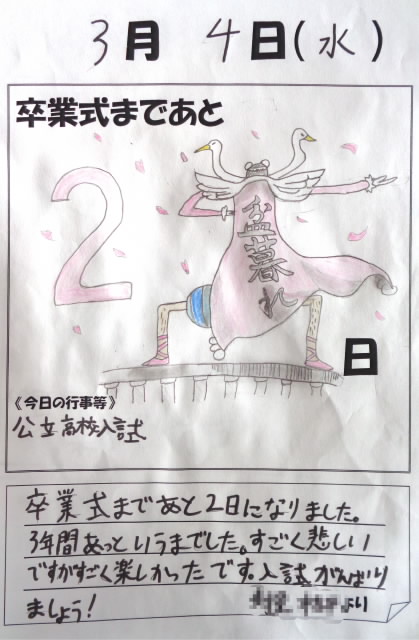 3月 4日(水)
卒業式まであと
2
日
盆暮れ
《今日の行事等》
公立高校入試
卒業式まであと2日になりました。
3年間あっというまでした。すごく悲しい
ですがすごく楽しかったです。入試がんばり
ましょう!
より